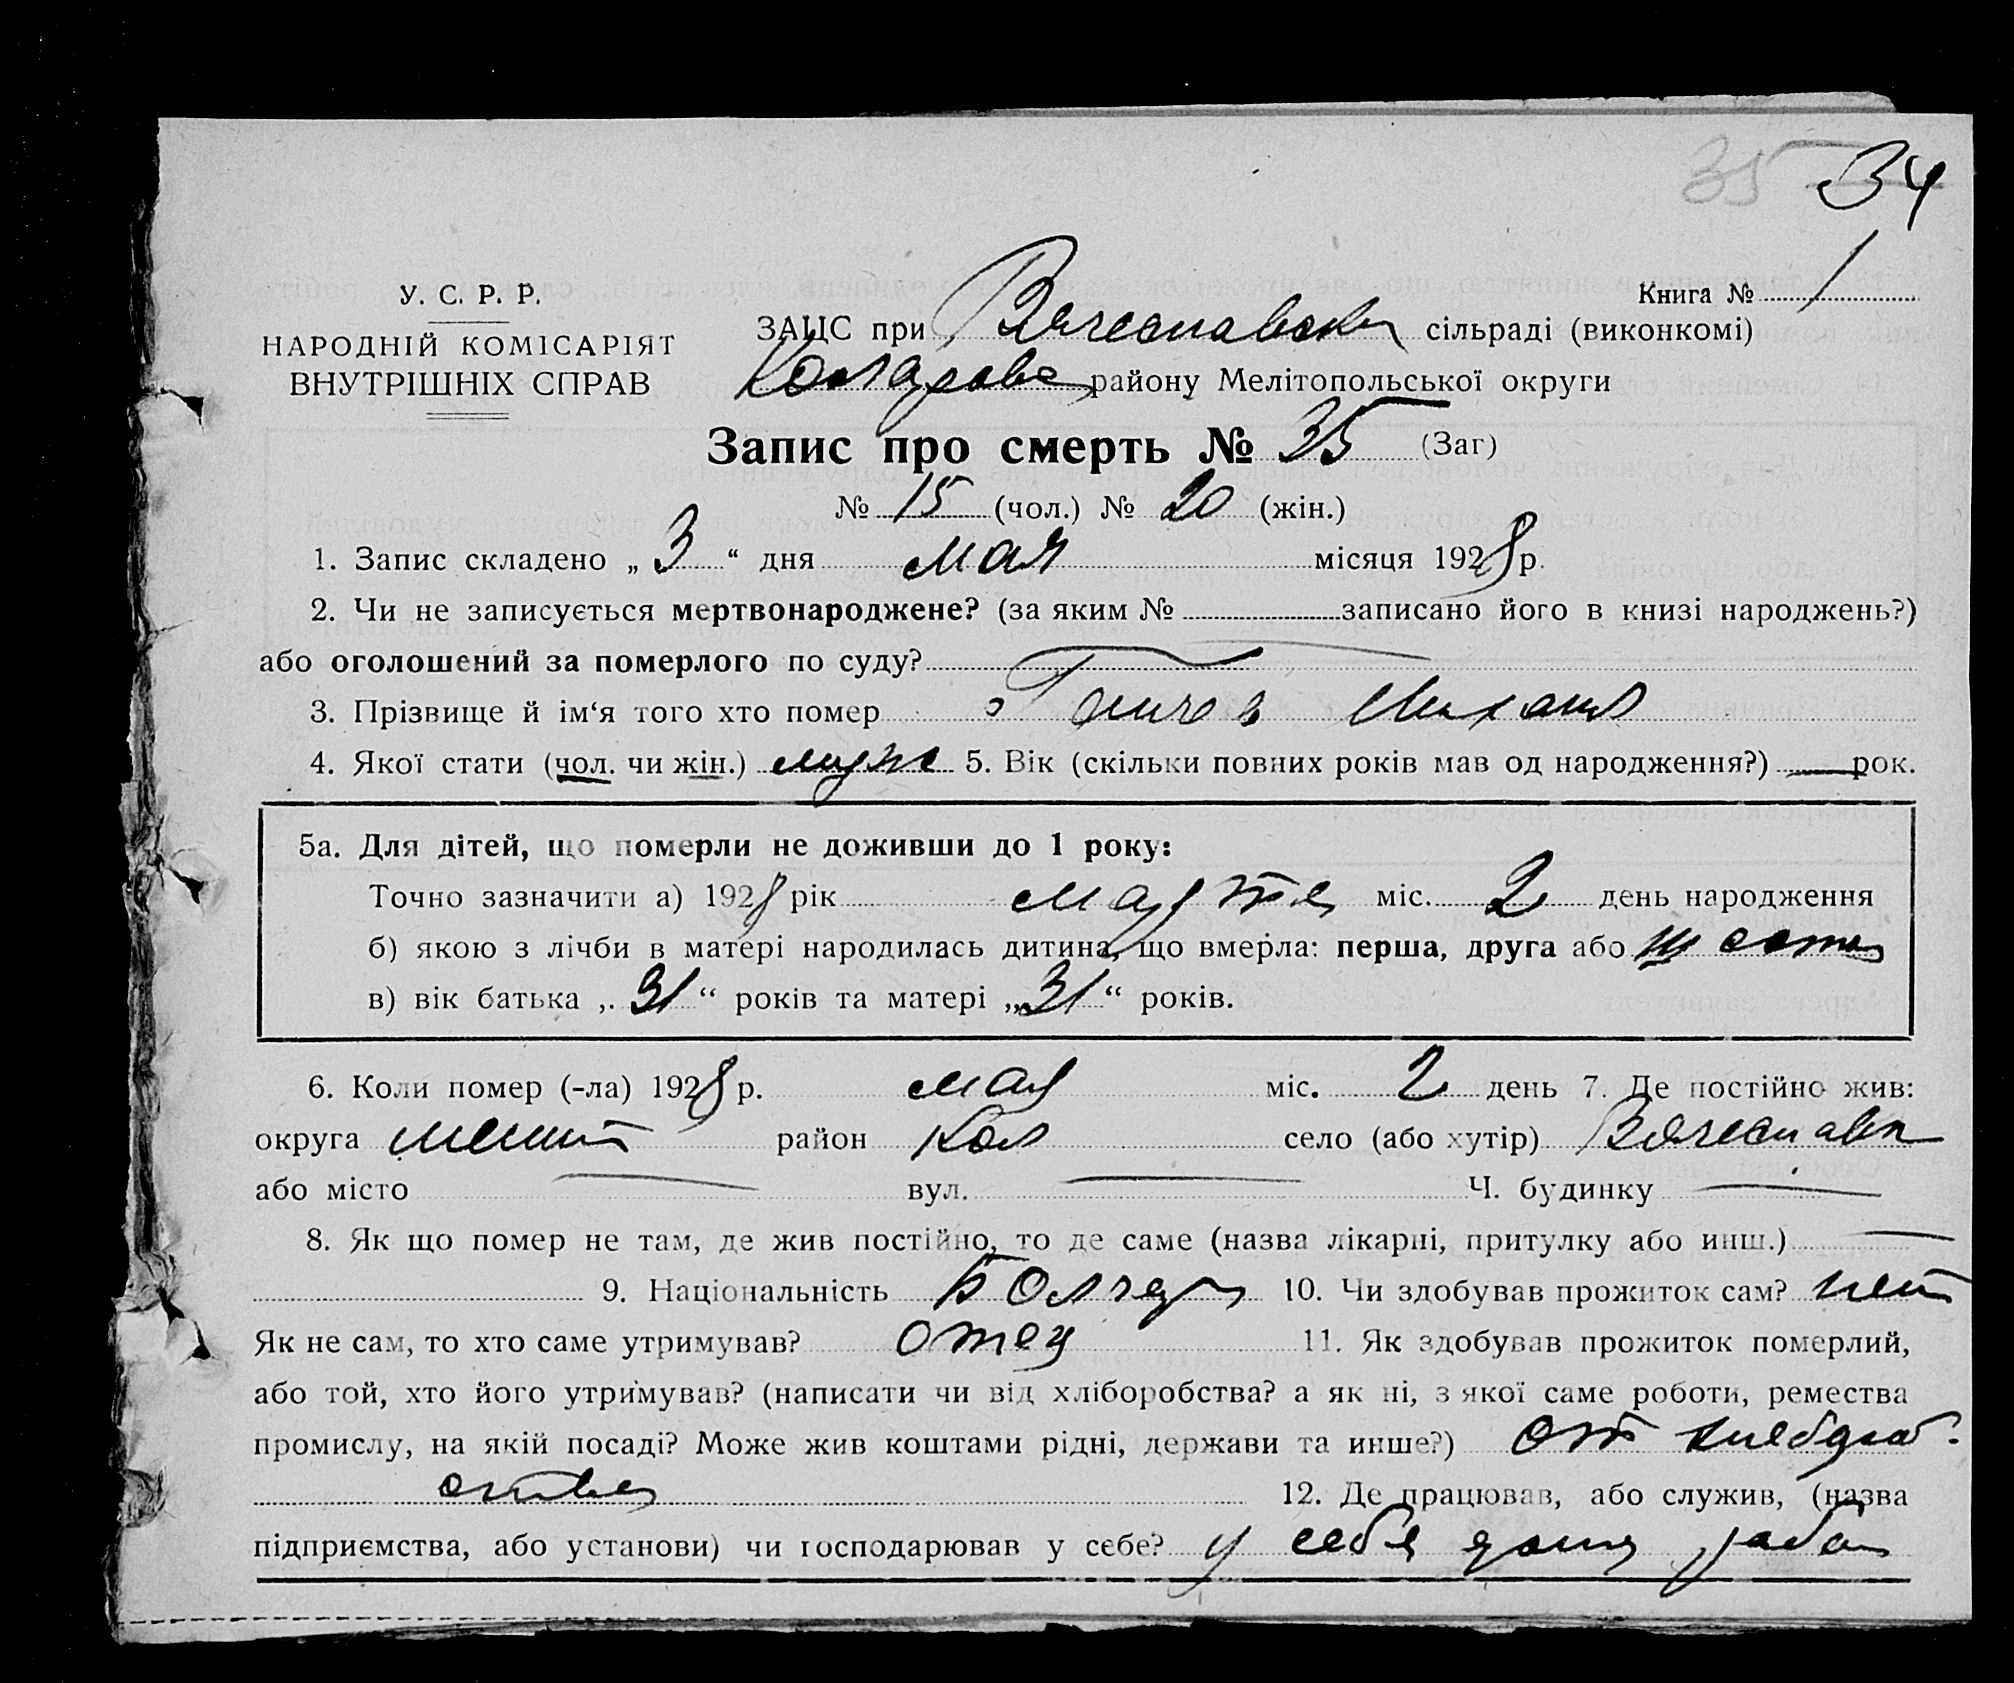 35 34
У. С. Р. Р.
НАРОДНІЙ КОМІСАРІЯТ
ВНУТРІШНІХ СПРАВ
Книга № 1
ЗАЦС при Вячеславск сільраді (виконкомі)
Коларовс району Мелітопольської округи
Запис про смерть № 35 (Заг)
№ 15 (чол.) № 20 (жін.)
1. Запис складено „ 3 “ дня мая місяця 1928 р.
2. Чи не записується мертвонароджене? (за яким № записано його в книзі народжень?)
або оголошений за померлого по суду?
3. Прізвище й ім‘я того хто помер Михаил
4. Якої стати (чол. чи жін.) муж 5. Вік (скільки повних років мав од народження?) рок.
5а. Для дітей, що померли не доживши до 1 року:
Точно зазначити а) 1928 рік марта міс. 2 день народження
б) якою з лічби в матері народилась дитина, що вмерла: перша, друга або шеста
в) вік батька „ 31 “ років та матері „ 31 “ років.
6. Коли помер (-ла) 1928 р. мая міс. 2 день 7. Де постійно жив:
округа Мелит район Кол село (або хутір) Вячеславк
або місто вул. Ч. будинку
8. Як що помер не там, де жив постійно, то де саме (назва лікарні, притулку або инш.)
9. Національність Болгар 10. Чи здобував прожиток сам? нет
Як не сам, то хто саме утримував? отец 11. Як здобував прожиток померлий,
або той, хто його утримував? (написати чи від хліборобства? а як ні, з якої саме роботи, ремества
промислу, на якій посаді? Може жив коштами рідні, держави та инше?) от
12. Де працював, або служив, (назва
підприємства, або установи) чи господарював у себе? у себя дома